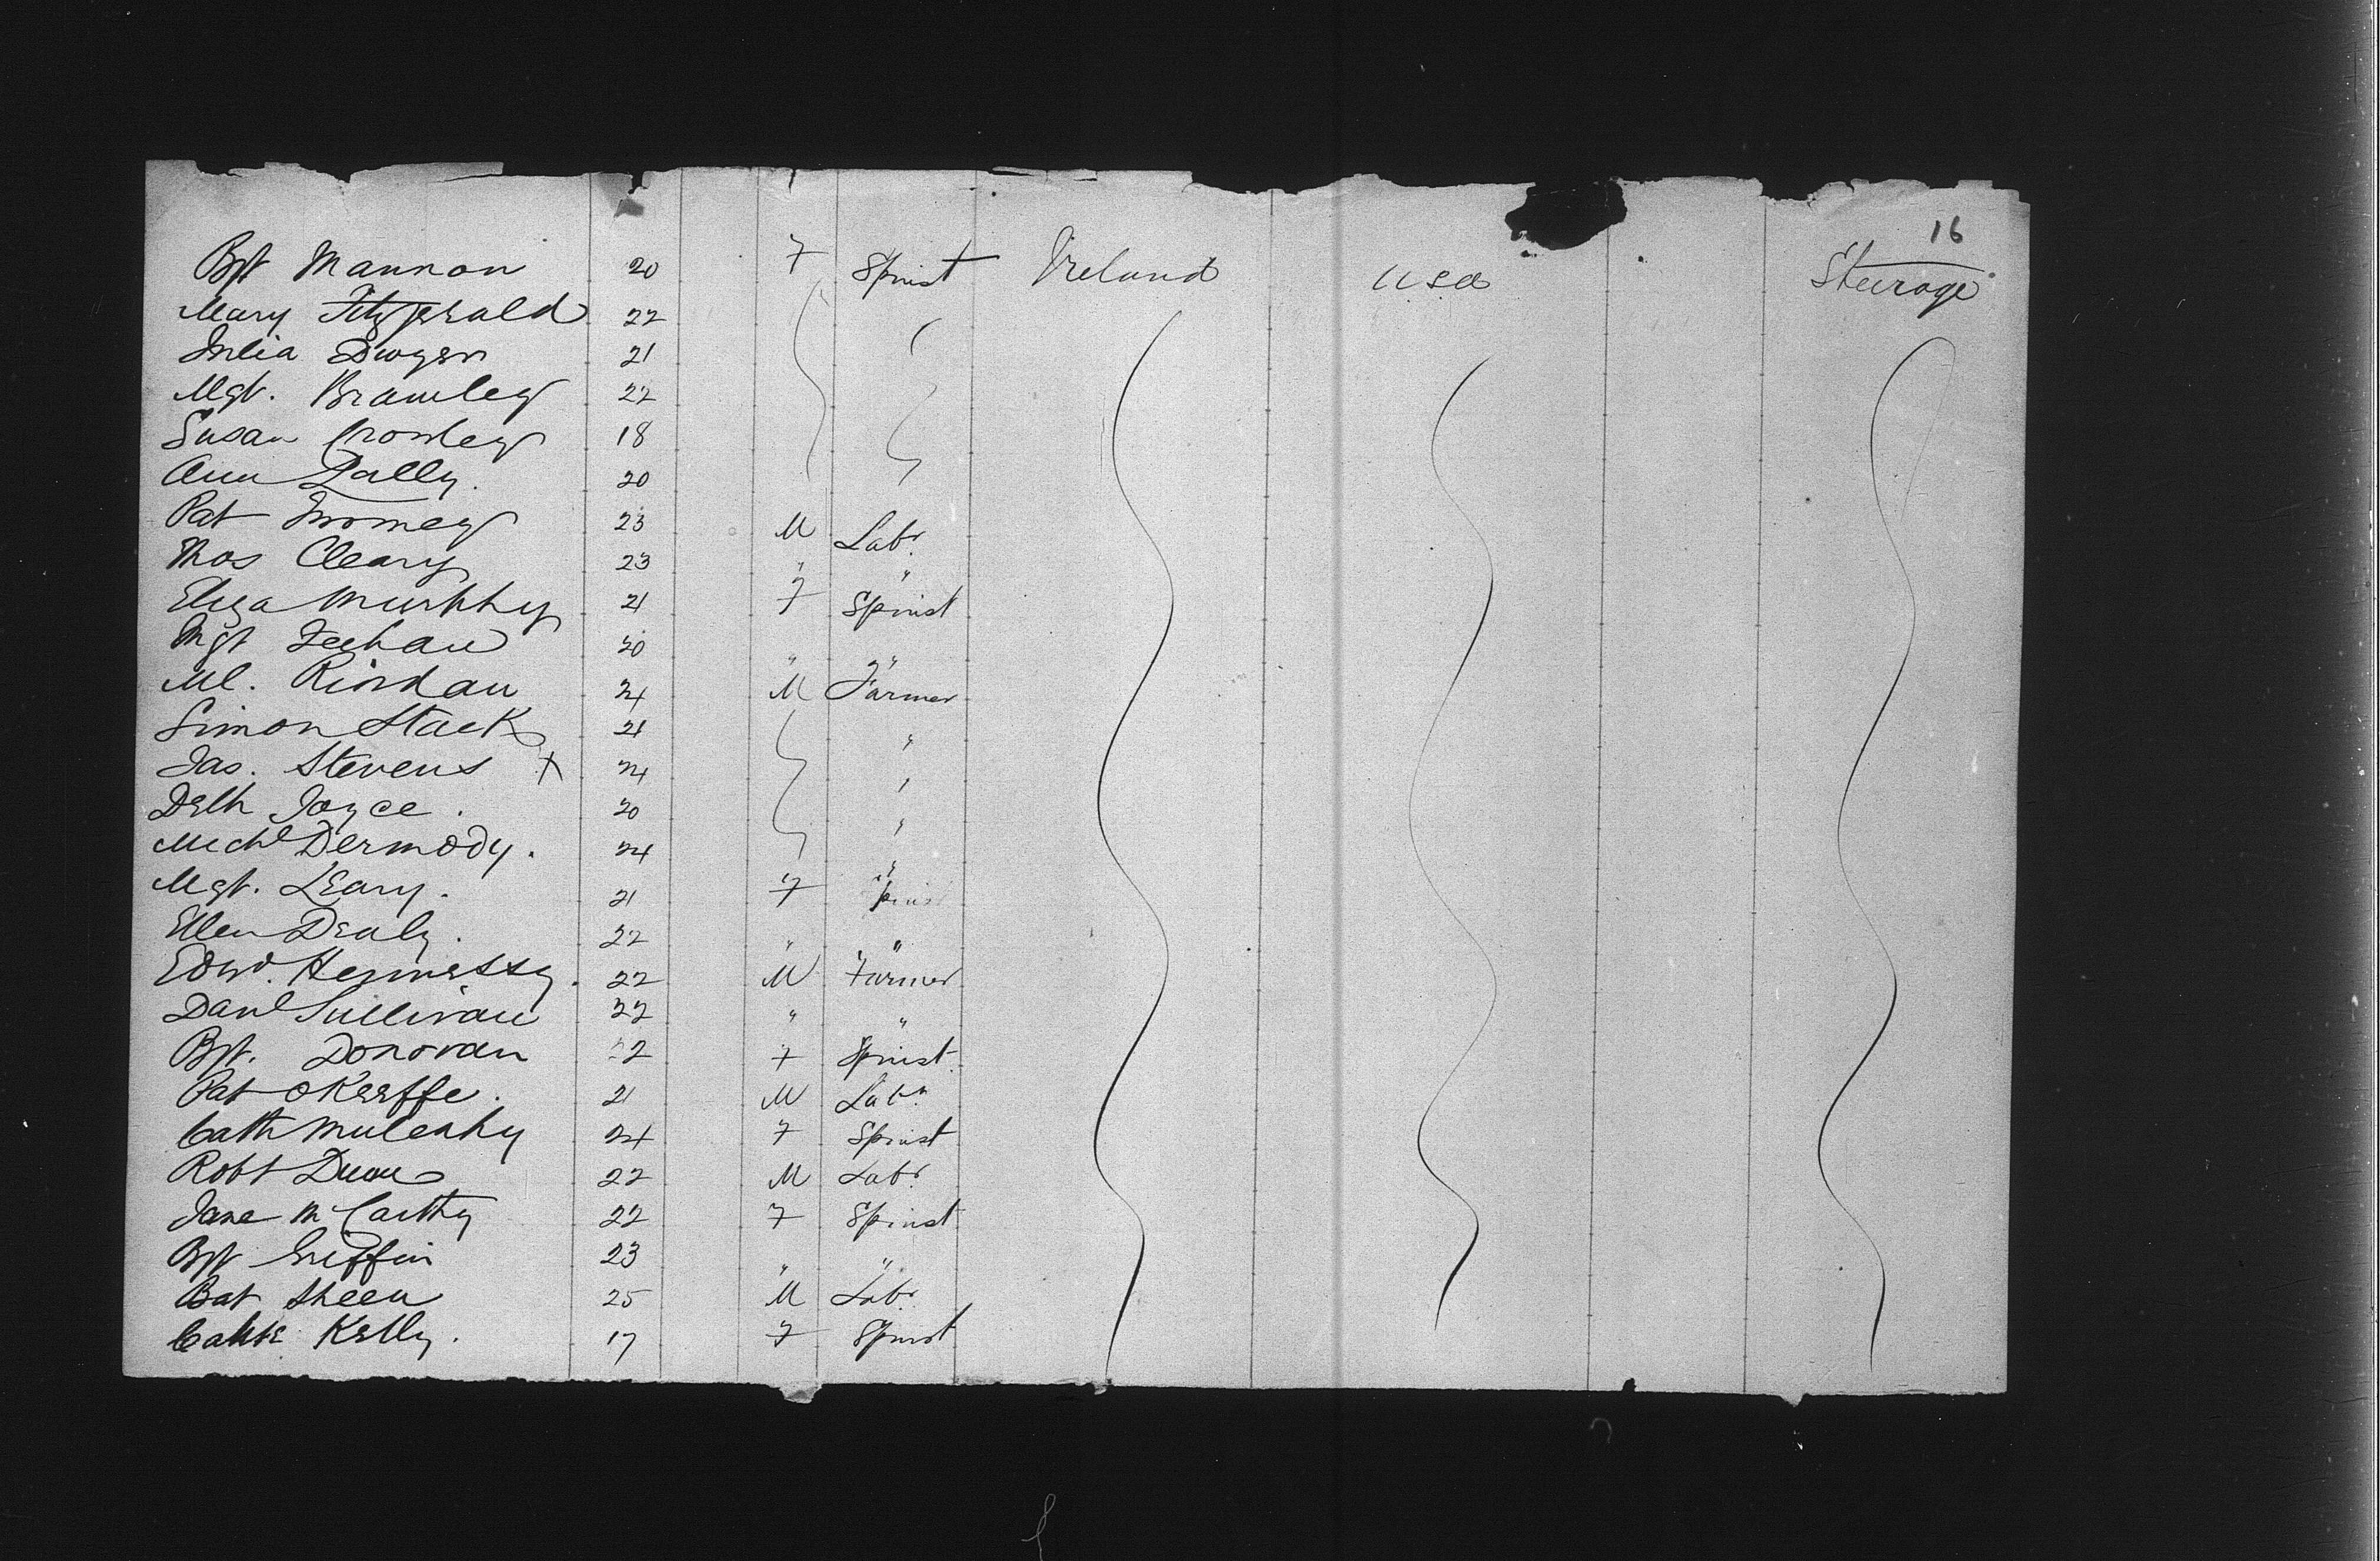 16
Bgt Mannon 20 F Spinst Ireland USA Steerage
Mary Fitzgerald 22
Julia Dwyer 21
Mgt. Brawley 22
Susan Crowley 18
Ann Lally. 20
Pat Twomey 23 M Labr
Thos Cleary 23 " "
Eliza Murphy 21 F Spinst
Mgt Feehan 20 " "
Ml. Riordan 24 M Farmer
Simon Stack 21 "
Jas. Stevens x 24 "
Joyce. 20 "
Michl Dermody. 24 "
Mgt. Leary. 21 F Spinst
Ellen Dealy. 22 " "
Edwd. Hennessy. 22 M Farmer
Danl Sullivan 22 " "
Bgt. Donovan 22 F Spinst
Pat OKeeffe. 21 M Labr
Cath Mulcahy 24 F Spinst
Robt Dunn 22 M Labr
Jane McCarthy 22 F Spinst
Bgt Griffin 23 " "
Bat Sheen 25 M Labr
Cathe Kelly. 17 F Spinst